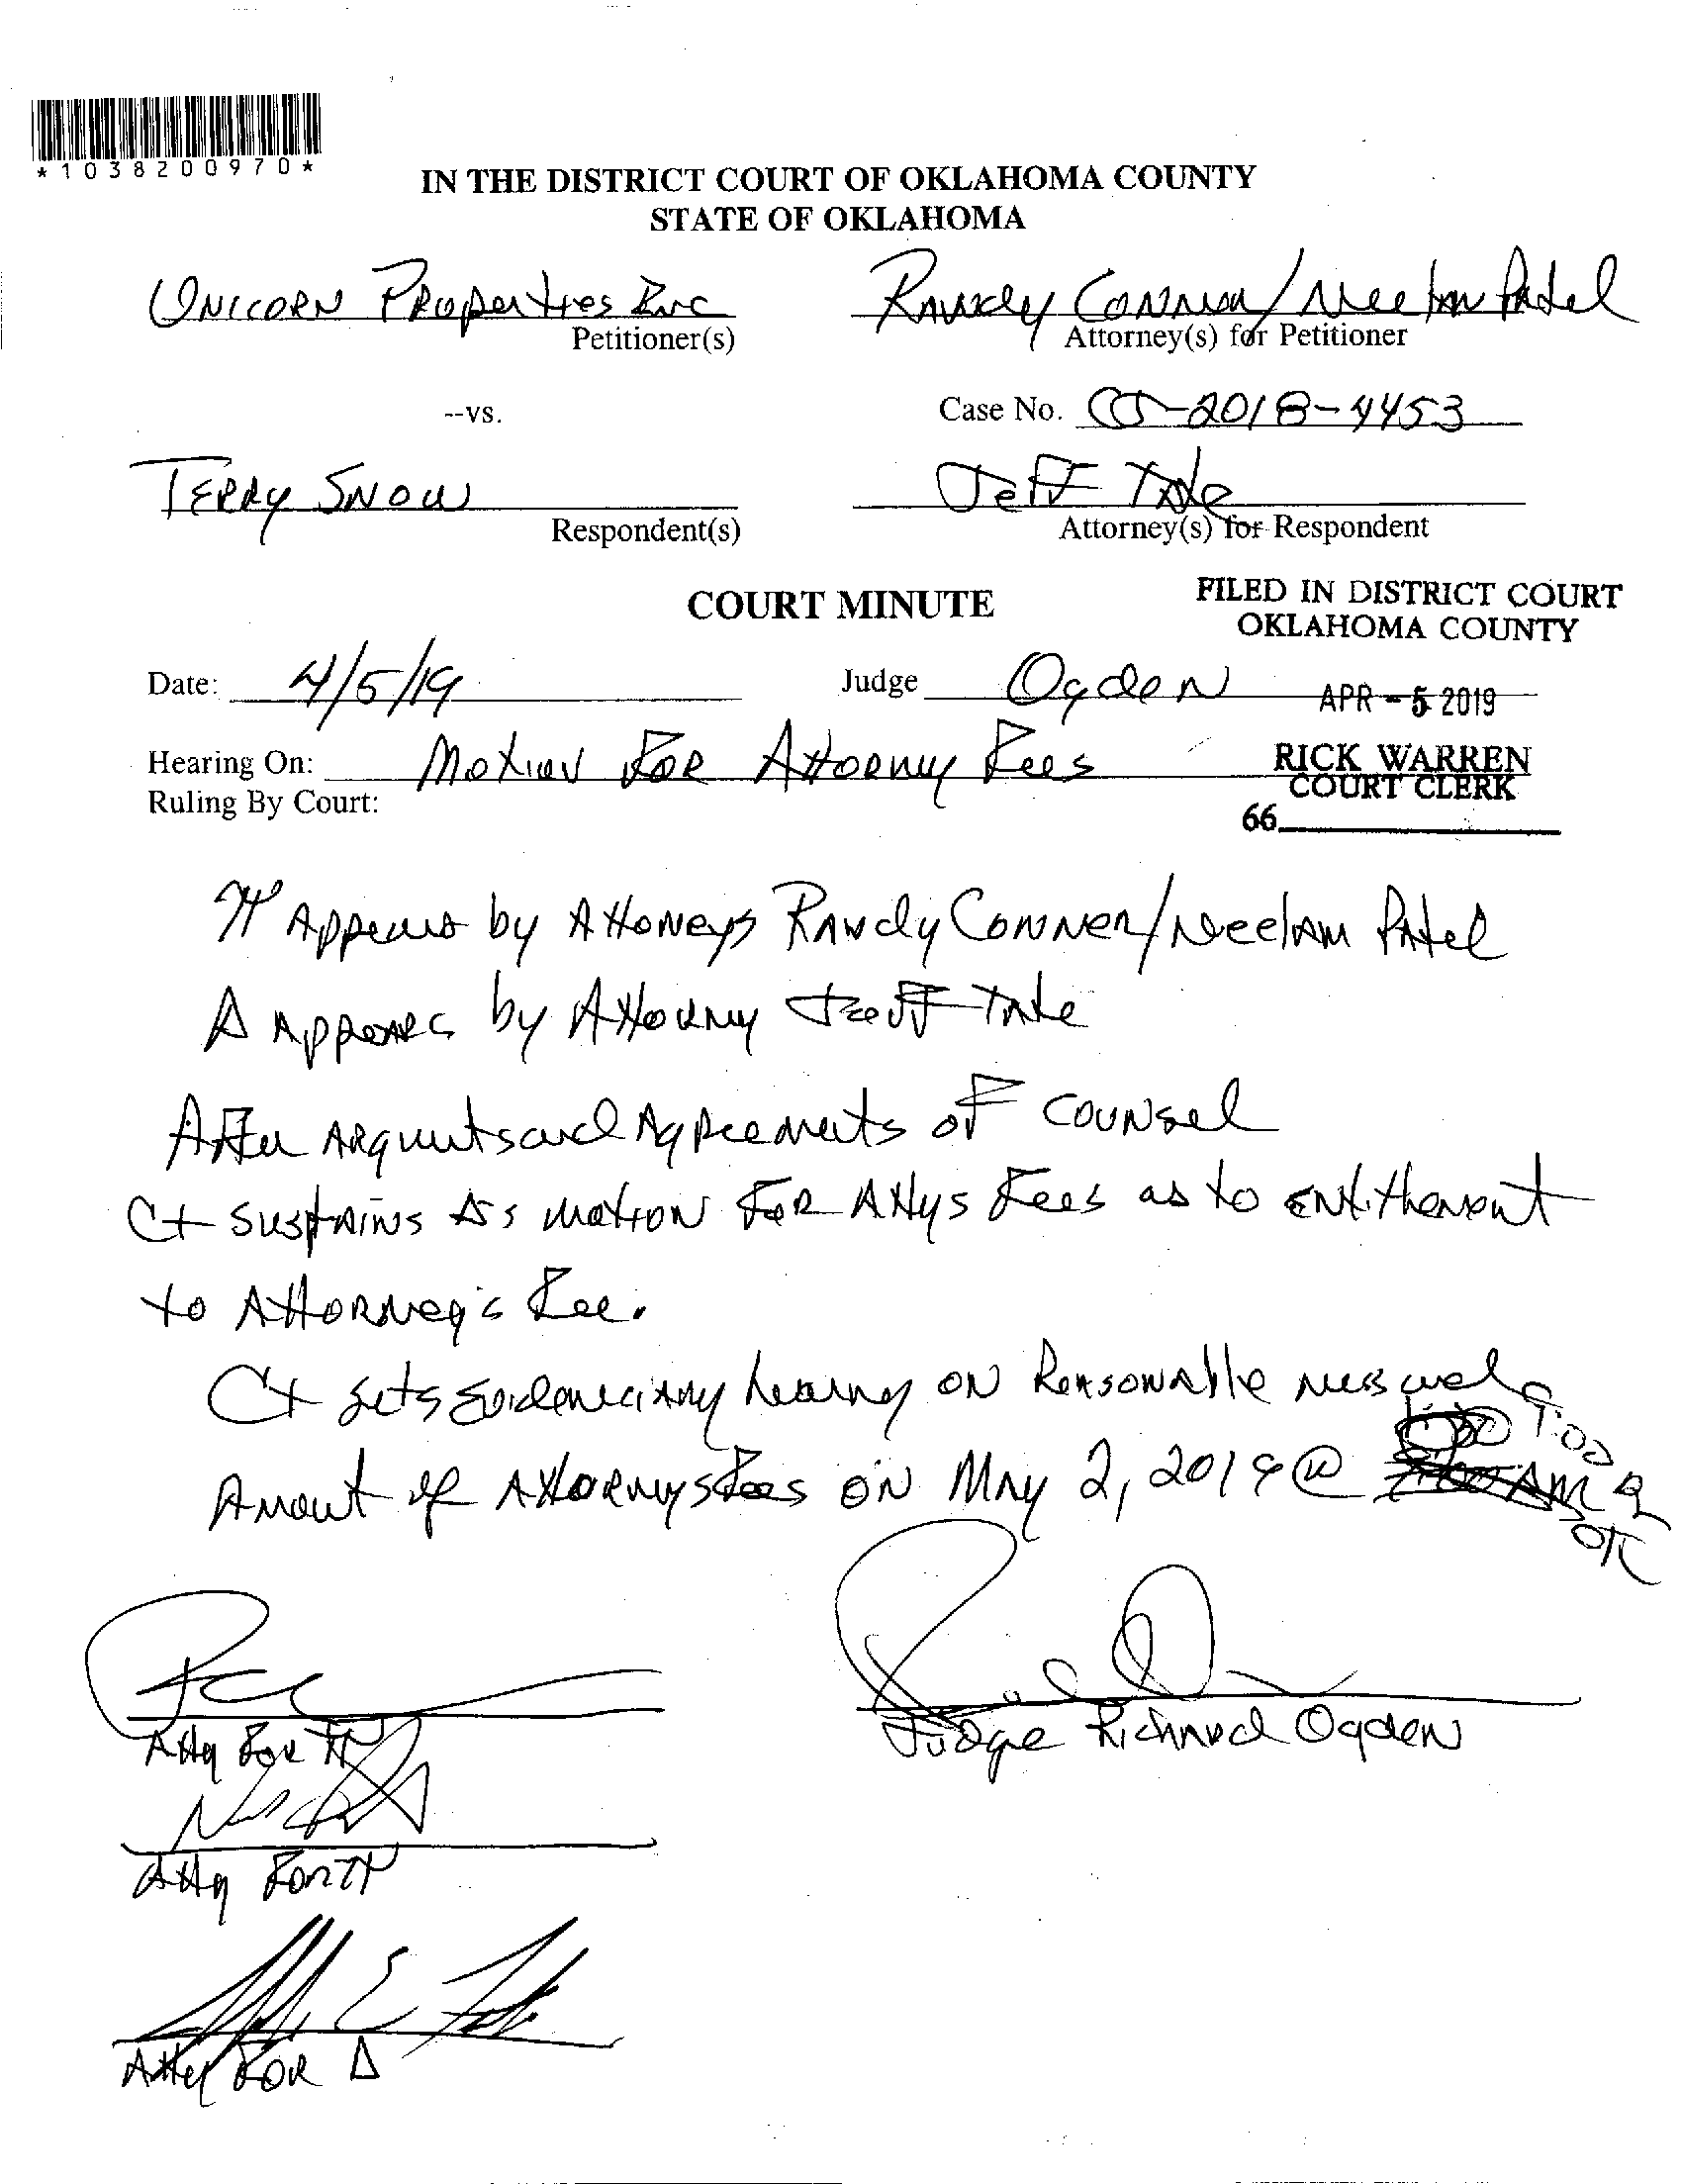 *1038200970*
IN THE DISTRICT COURT OF OKLAHOMA COUNTY
STATE OF OKLAHOMA
Unicorn Properties Inc
Petitioner(s)
Randy Conner/Neelam Patel
Attorney(s) for Petitioner
--vs.
Case No. CJ-2018-4453
Terry Snow
Respondent(s)
Jeff Tate
Attorney(s) for Respondent
COURT MINUTE
FILED IN DISTRICT COURT
OKLAHOMA COUNTY
Date: 4/5/19
Judge Ogden
APR - 5 2019
Hearing On: Motion For Attorney Fees
RICK WARREN
COURT CLERK
Ruling By Court:
66
π Appears by Attorneys Randy Conner/Neelam Patel
Δ Appears by Attorney Jeff Tate
After Arguments and Agreements of Counsel
Ct sustains Δ's motion For Attys Fees as to entitlement
to Attorney's Fee.
Ct sets Evidenciary hearing on Reasonableness and
Amount of Attorneys Fees on May 2, 2019 @
Atty For π
Judge Richard Ogden
Atty For π
Atty FOR Δ